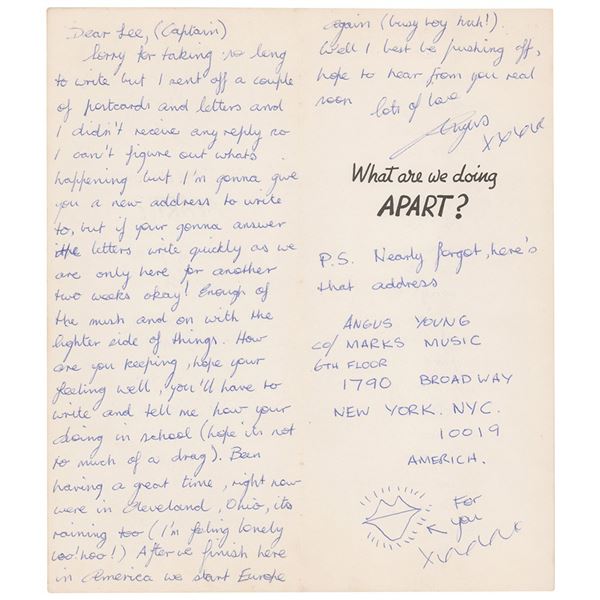 Dear Lee, (Captain)
Sorry for taking so long
to write but I sent off a couple
of postcards and letters and
I didn't receive any reply so
I can't figure out whats
happening but I'm gonna give
you a new address to write
to, but if your gonna answer
the letters write quickly as we
are only here for another
two weeks okay! Enough of
the mush and on with the
lighter side of things. How
are you keeping, hope your
feeling well, you'll have to
write and tell me how your
doing in school (hope its not
to much of a drag). Been
having a great time, right now
were in Cleveland, Ohio, its
raining too (I'm feeling lonely
woo'hoo!) After we finish here
in America we start Europe
again (busy boy huh!).
Well I best be pushing off,
hope to hear from you real
soon
lots of love
Angus
xxxxx
What are we doing
APART?
P.S. Nearly forgot, here's
that address
ANGUS YOUNG
c/o MARKS MUSIC
6TH FLOOR
1790 BROADWAY
NEW YORK. NYC.
10019
AMERICH.
For
you
xxxxxx